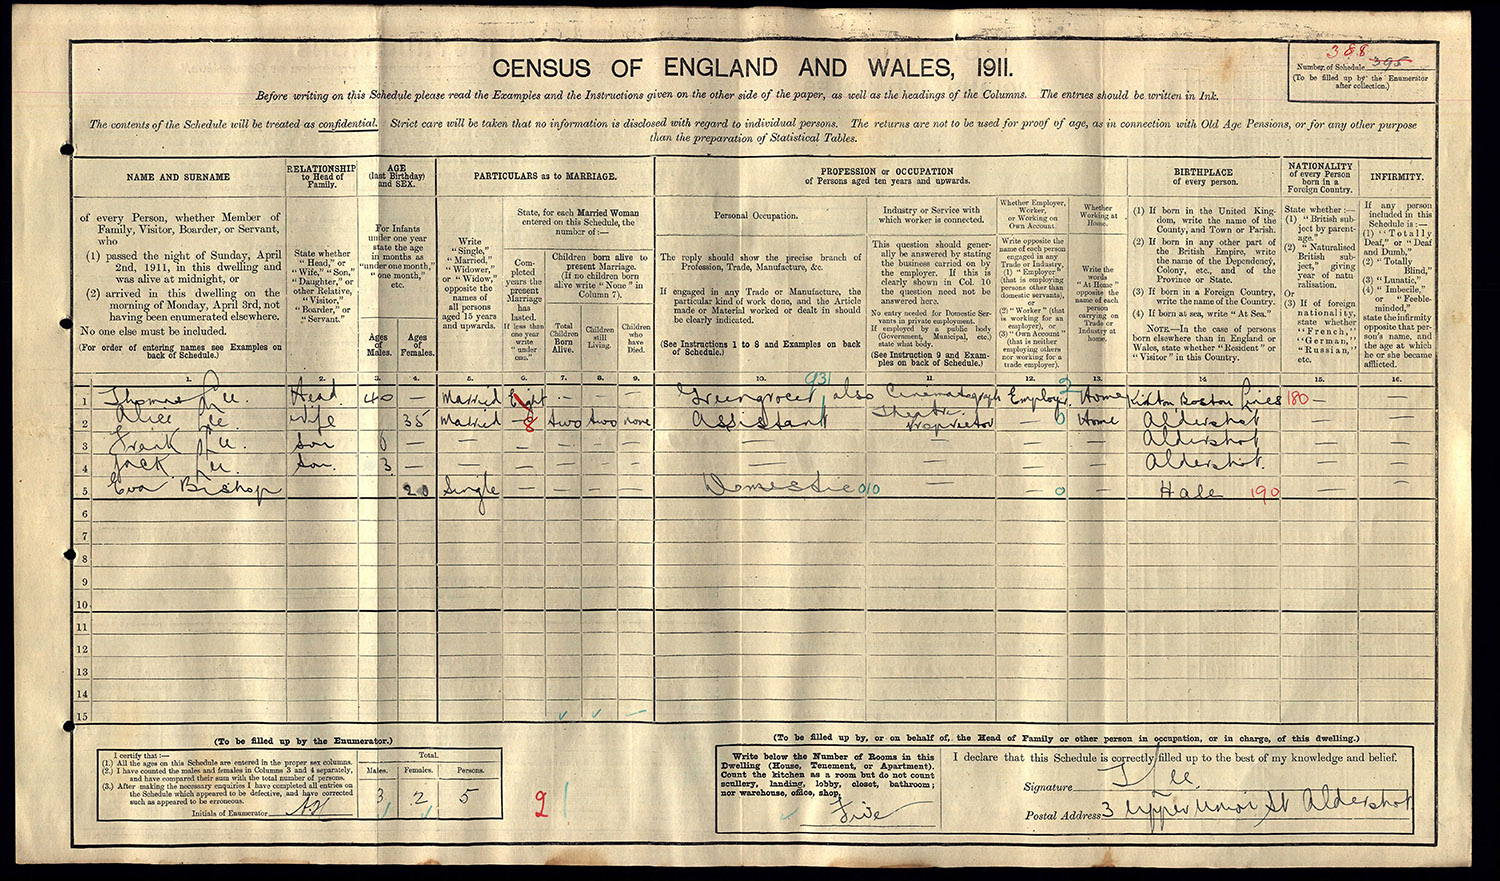 388
Number of Schedule 395
(To be filled up by the Enumerator
after collection.)
CENSUS OF ENGLAND AND WALES, 1911.
Before writing on this Schedule please read the Examples and the Instructions given on the other side of the paper, as well as the headings of the Columns. The entries should be written in Ink.
The contents of the Schedule will be treated as confidential. Strict care will be taken that no information is disclosed with regard to individual persons. The returns are not to be used for proof of age, as in connection with Old Age Pensions, or for any other purpose
than the preparation of Statistical Tables.
NAME AND SURNAME
of every Person, whether Member of
Family, Visitor, Boarder, or Servant,
who
(1) passed the night of Sunday, April
2nd, 1911, in this dwelling and
was alive at midnight, or
(2) arrived in this dwelling on the
morning of Monday, April 3rd, not
having been enumerated elsewhere.
No one else must be included.
(For order of entering names see Examples on
back of Schedule.)
RELATIONSHIP
to Head of
Family.
State whether
"Head," or
"Wife," "Son,"
"Daughter," or
other Relative,
"Visitor,"
"Boarder," or
"Servant."
AGE
(last Birthday)
and SEX.
For Infants
under one year
state the age
in months as
"under one month,"
"one month,"
etc.
Ages
of
Males.
Ages
of
Females.
PARTICULARS as to MARRIAGE.
Write
"Single,"
"Married,"
"Widower,"
or "Widow,"
opposite the
names of
all persons
aged 15 years
and upwards.
State, for each Married Woman
entered on this Schedule, the
number of:—
Completed
years the
present
Marriage
has
lasted.
If less than
one year
write
"under
one."
Children born alive to
present Marriage.
(If no children born
alive write "None" in
Column 7).
Total
Children
Born
Alive.
Children
still
Living.
Children
who
have
Died.
PROFESSION or OCCUPATION
of Persons aged ten years and upwards.
Personal Occupation.
The reply should show the precise branch of
Profession, Trade, Manufacture, &c.
If engaged in any Trade or Manufacture, the
particular kind of work done, and the Article
made or Material worked or dealt in should
be clearly indicated.
(See Instructions 1 to 8 and Examples on back
of Schedule.)
Industry or Service with
which worker is connected.
This question should gener-
ally be answered by stating
the business carried on by
the employer. If this is
clearly shown in Col. 10
the question need not be
answered here.
No entry needed for Domestic Ser-
vants in private employment.
If employed by a public body
(Government, Municipal, etc.)
state what body.
(See Instruction 9 and Exam-
ples on back of Schedule.)
Whether Employer,
Worker,
or Working on
Own Account.
Write opposite the
name of each person
engaged in any
Trade or Industry,
(1) "Employer"
(that is employing
persons other than
domestic servants),
or
(2) "Worker" (that
is working for an
employer), or
(3) "Own Account"
(that is neither
employing others
nor working for a
trade employer).
Whether
Working at
Home.
Write the
words
"At Home"
opposite the
name of each
person
carrying on
Trade or
Industry at
home.
BIRTHPLACE
of every person.
(1) If born in the United King-
dom, write the name of the
County, and Town or Parish.
(2) If born in any other part of
the British Empire, write
the name of the Dependency,
Colony, etc., and of the
Province or State.
(3) If born in a Foreign Country,
write the name of the Country.
(4) If born at sea, write "At Sea."
NOTE.—In the case of persons
born elsewhere than in England or
Wales, state whether "Resident" or
"Visitor" in this Country.
NATIONALITY
of every Person
born in a
Foreign Country.
State whether:—
(1) "British sub-
ject by parent-
age."
(2) "Naturalised
British sub-
ject," giving
year of natu-
ralisation.
Or
(3) If of foreign
nationality,
state whether
"French,"
"German,"
"Russian,"
etc.
INFIRMITY.
If any person
included in this
Schedule is:—
(1) "Totally
Deaf," or "Deaf
and Dumb,"
(2) "Totally
Blind,"
(3) "Lunatic,"
(4) "Imbecile,"
or "Feeble-
minded,"
state the infirmity
opposite that per-
son's name, and
the age at which
he or she became
afflicted.
1. 2. 3. 4. 5. 6. 7. 8. 9. 10. 11. 12. 13. 14 15. 16.
1 Thomas Lee. Head. 40 — Married Eight — — — Greengrocer, also 931 Cinematograph Employer Home Kirton Boston Lincs 180 — —
2 Alice Lee. Wife 35 Married 8 two two none Assistant Theatre Proprietor — 0 Home Aldershot — —
3 Frank Lee. Son 6 — — — — — — — — — — Aldershot — —
4 Jack Lee. Son. 3 — — — — — — — — — — Aldershot. — —
5 Eva Bishop 20 Single — — — — Domestic 010 — 0 Hale 190 — —
6
7
8
9
10
11
12
13
14
15
(To be filled up by the Enumerator.)
I certify that:—
(1.) All the ages on this Schedule are entered in the proper sex columns.
(2.) I have counted the males and females in Columns 3 and 4 separately,
and have compared their sum with the total number of persons.
(3.) After making the necessary enquiries I have completed all entries on
the Schedule which appeared to be defective, and have corrected
such as appeared to be erroneous.
Initials of Enumerator
Total.
Males. Females. Persons.
3 2 5
2
(To be filled up by, or on behalf of, the Head of Family or other person in occupation, or in charge, of this dwelling.)
Write below the Number of Rooms in this
Dwelling (House, Tenement, or Apartment).
Count the kitchen as a room but do not count
scullery, landing, lobby, closet, bathroom;
nor warehouse, office, shop.
Five
I declare that this Schedule is correctly filled up to the best of my knowledge and belief.
Signature T Lee
Postal Address 3 Upper Union St Aldershot